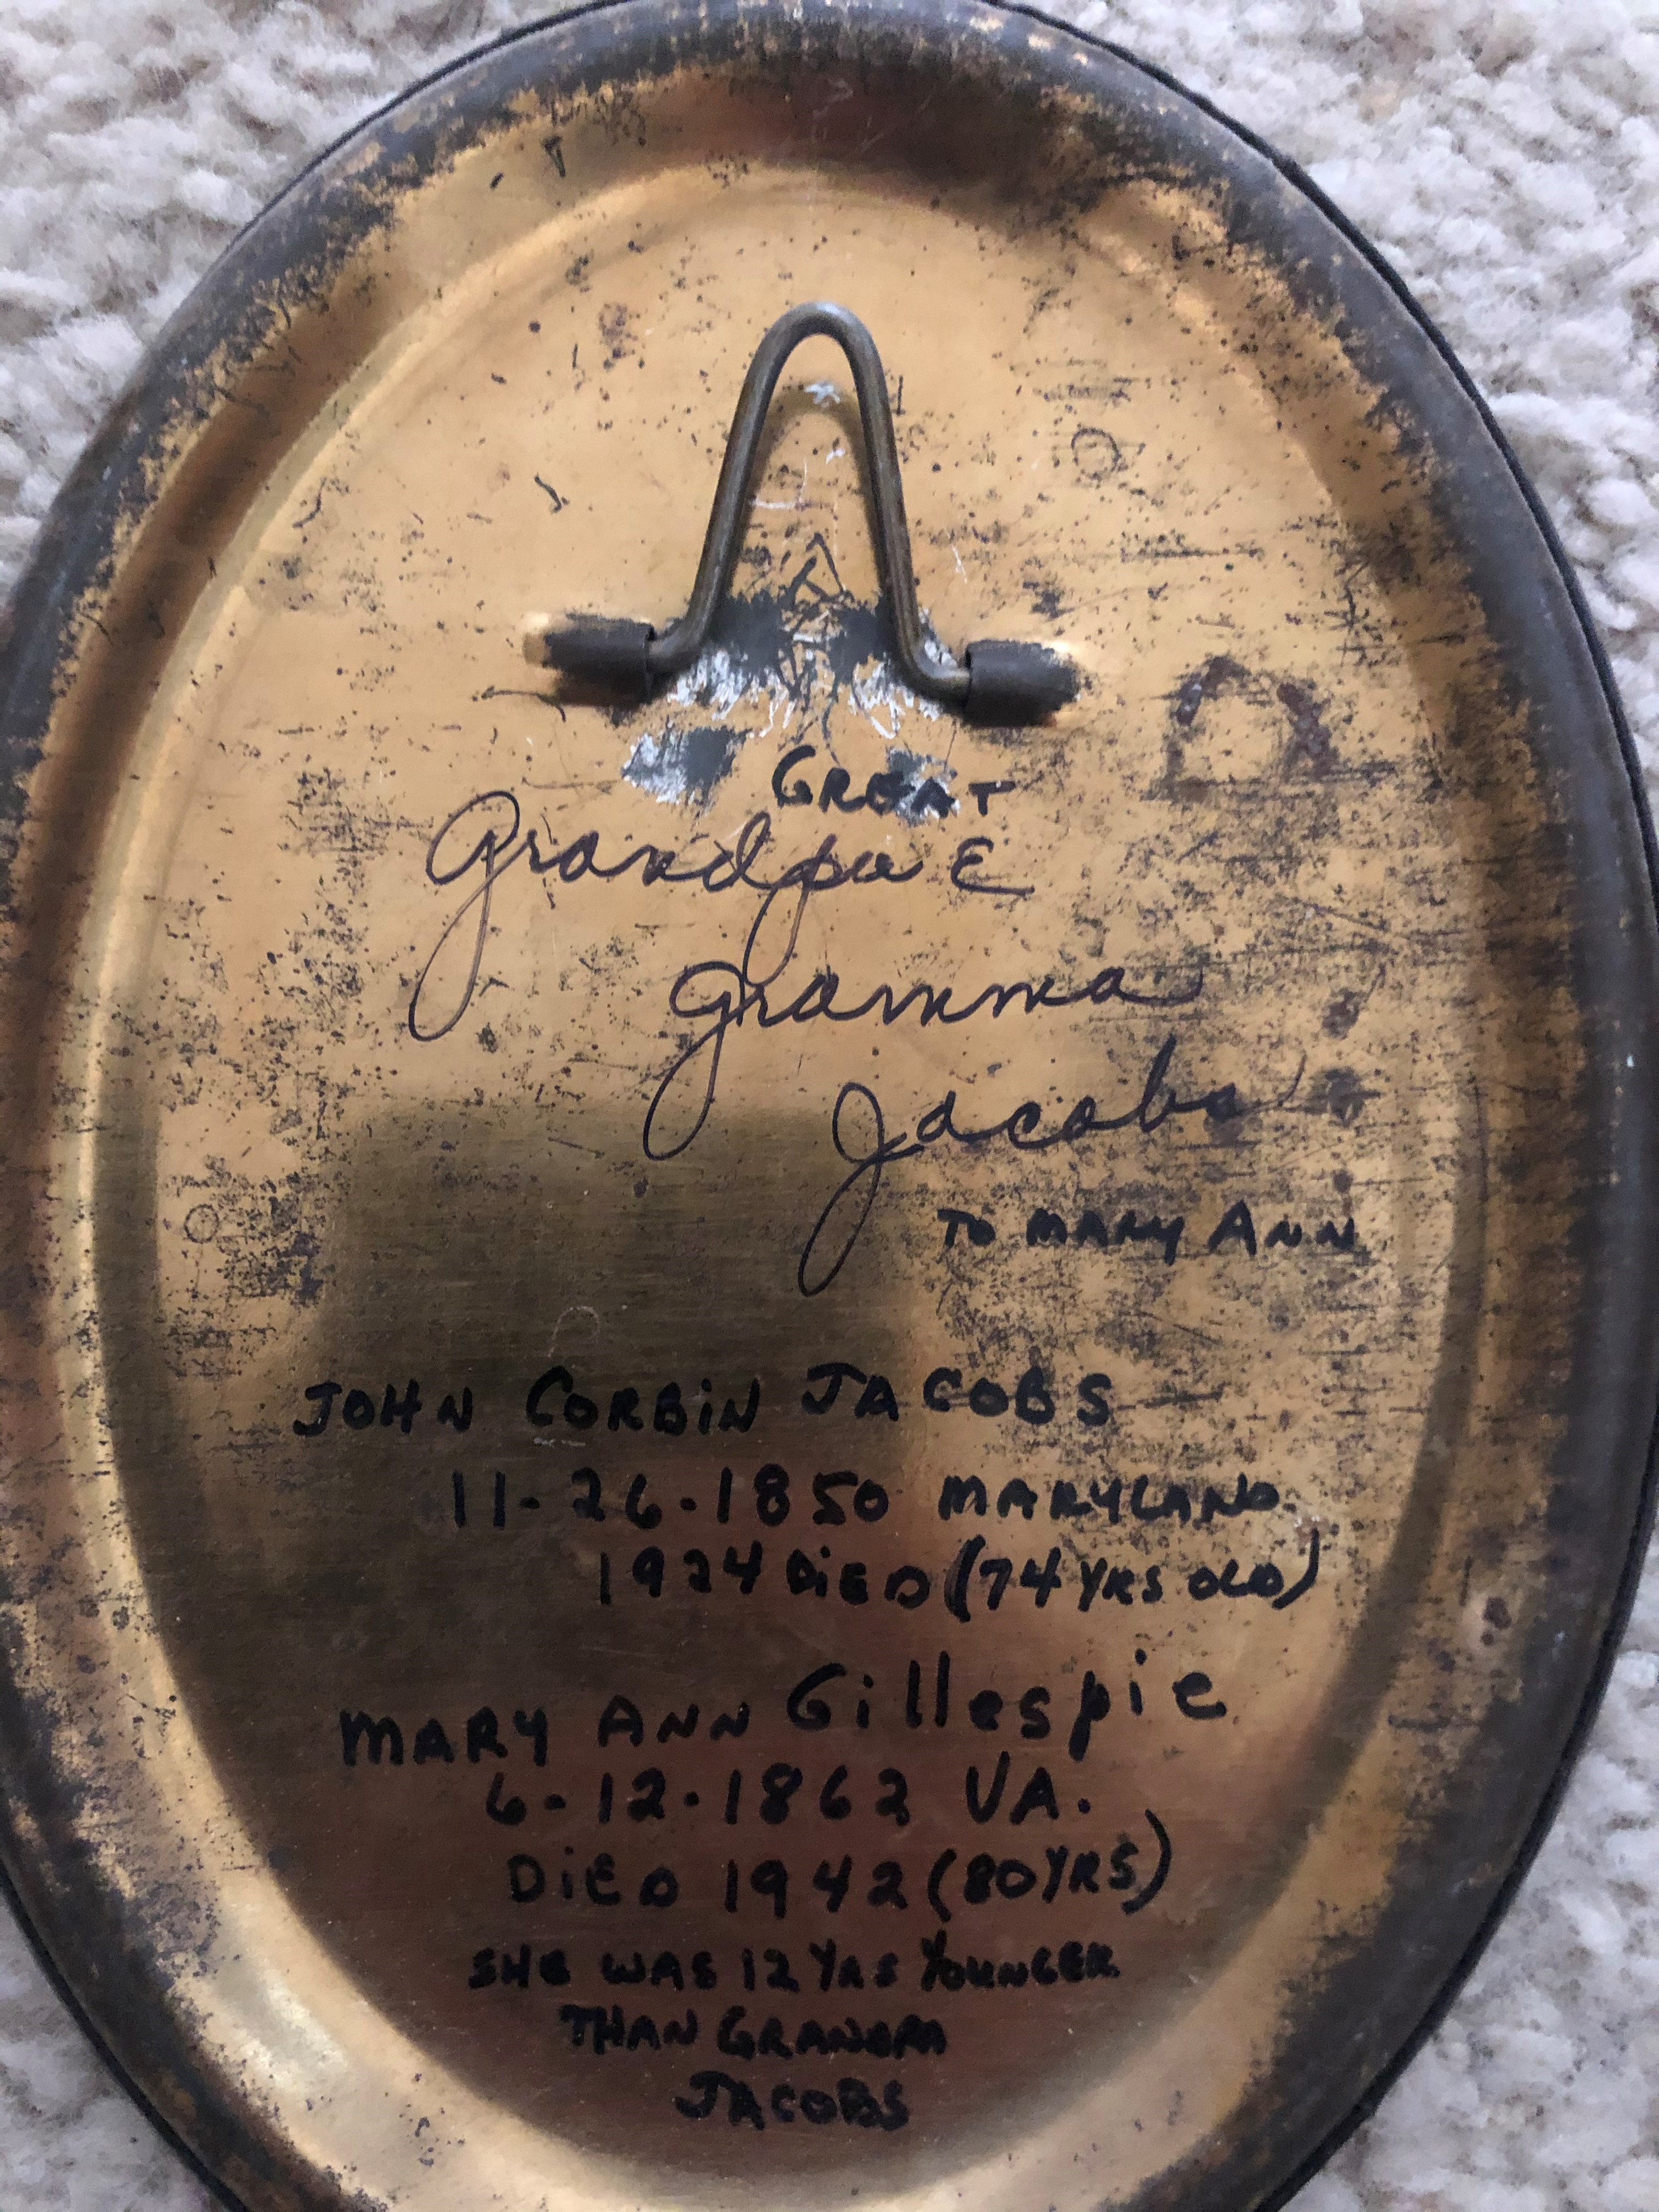 GREAT
Grandpa &
Gramma
Jacobs
TO MARY ANN
JOHN CORBiN JACOBS
11-26-1850 MARYLAND
1924 DiED (74 YRS OLD)
MARY ANN Gillespie
6-12-1862 VA.
DiED 1942 (80 YRS)
SHE WAS 12 YRS YOUNGER
THAN GRANDPA
JACOBS